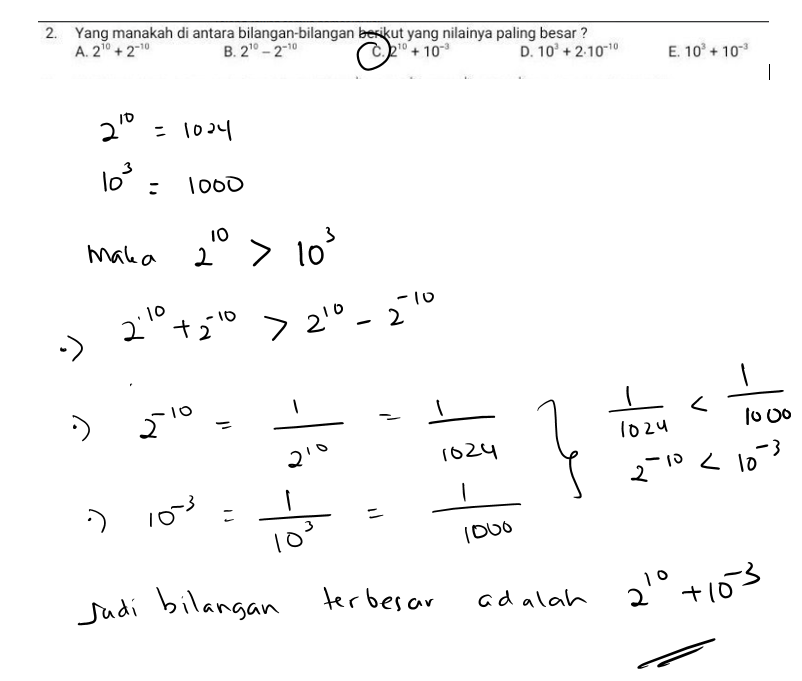 2. Yang manakah di antara bilangan-bilangan berikut yang nilainya paling besar ?
A. 2¹⁰ + 2⁻¹⁰ B. 2¹⁰ – 2⁻¹⁰ C. 2¹⁰ + 10⁻³ D. 10³ + 2·10⁻¹⁰ E. 10³ + 10⁻³
2¹⁰ = 1024
10³ = 1000
Maka 2¹⁰ > 10³
·) 2¹⁰ + 2⁻¹⁰ > 2¹⁰ - 2⁻¹⁰
·) 2⁻¹⁰ = 1/2¹⁰ = 1/1024 } 1/1024 < 1/1000
2⁻¹⁰ < 10⁻³
·) 10⁻³ = 1/10³ = 1/1000
Jadi bilangan terbesar adalah 2¹⁰ + 10⁻³